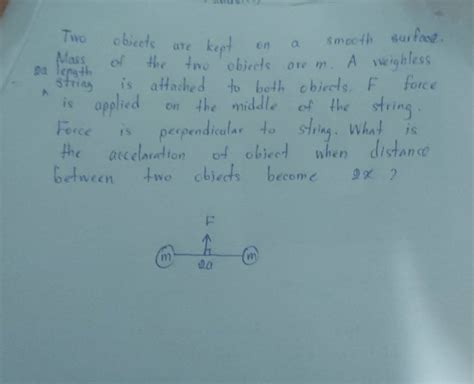 Two objects are kept on a smooth surface.
Mass of the two objects are m. A weighless
2a length
string is attached to both objects. F force
is applied on the middle of the string.
Force is perpendicular to string. What is
the accelaration of object when distance
between two objects become 2x ?
F
m m
2a